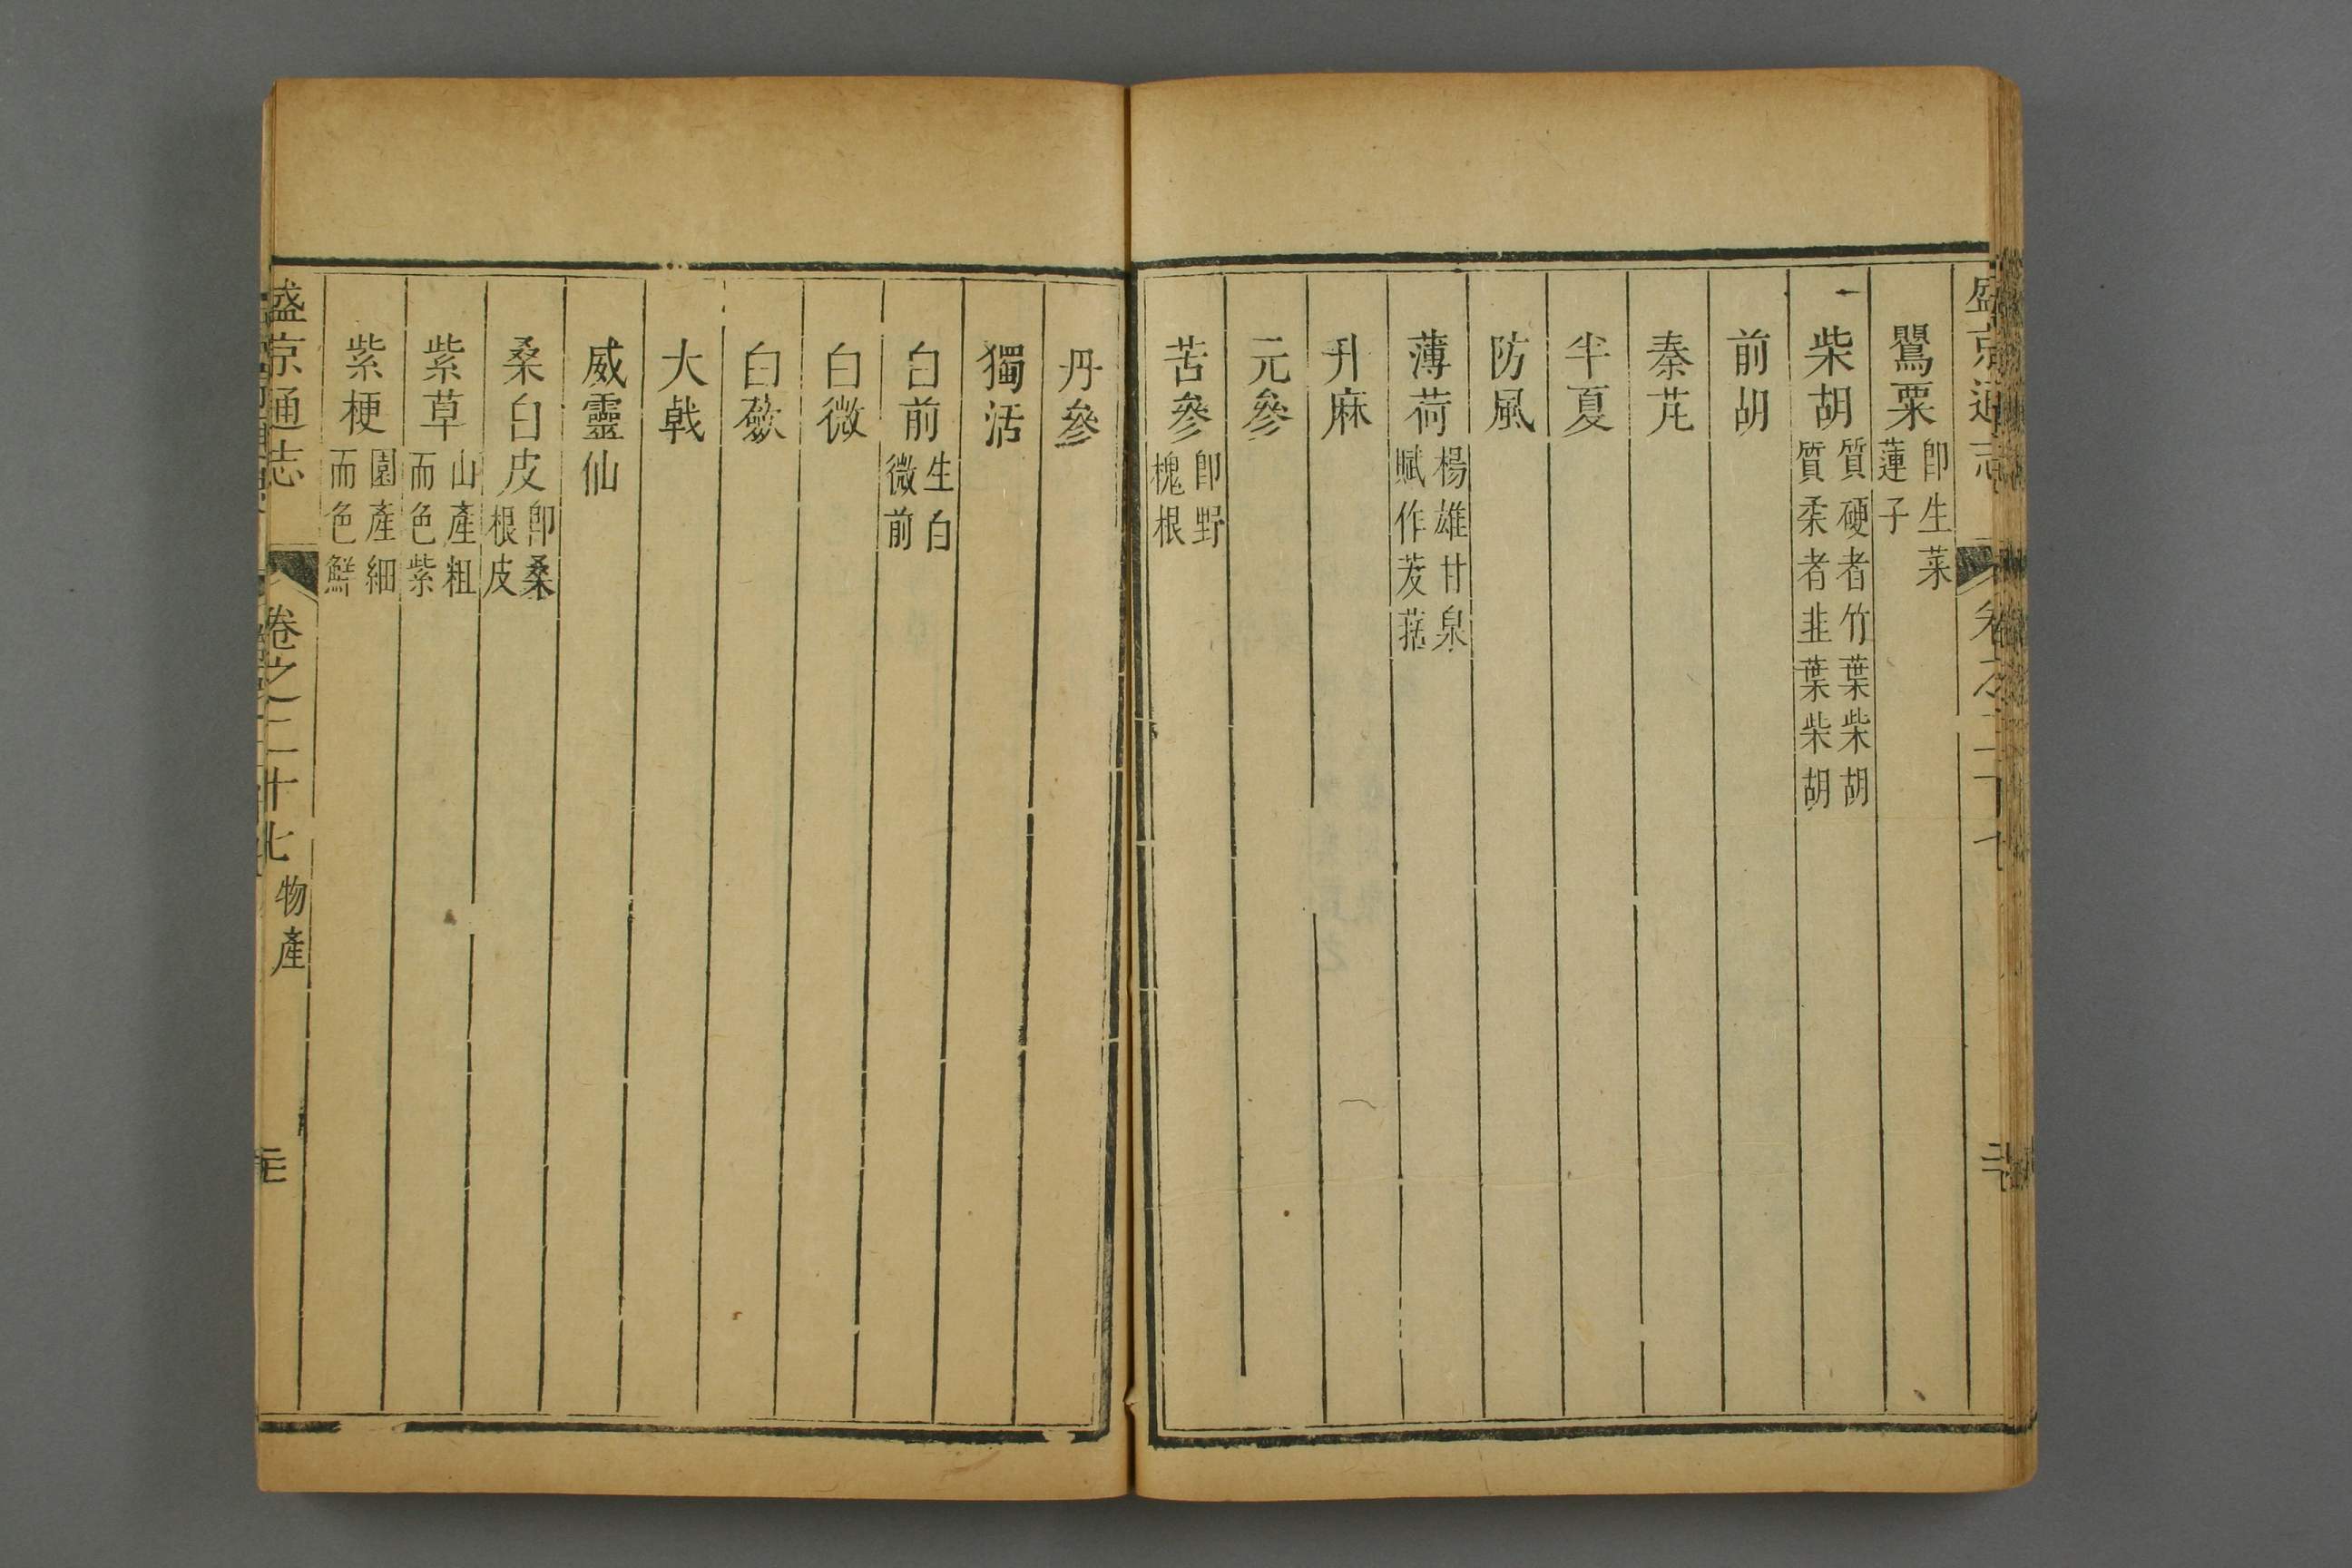 盛京通志 卷之二十七
罌粟 卽生菜蓮子
柴胡 質硬者竹葉柴胡質柔者韭葉柴胡
前胡
秦芃
半夏
防風
薄荷 楊雄甘泉賦作茇葀
升麻
元參
苦參 卽野槐根
丹參
獨活
白前 生白微前
白微
白蘞
大戟
威靈仙
桑白皮 卽桑根皮
紫草 山產粗而色紫
紫梗 園產細而色鮮
盛京通志 卷之二十七 物產